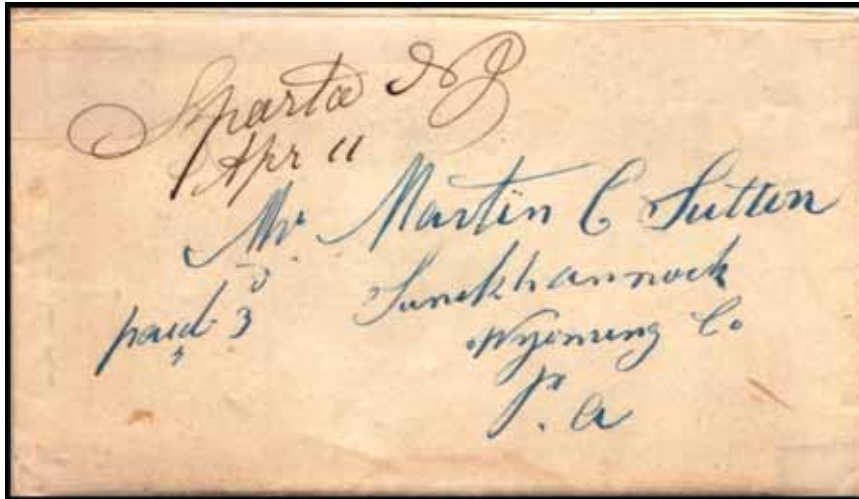 Sparta NJ
Apr 11
Mr Martin C Sutton
paid 3 Tunckhannock
Wyoming Co
P. a